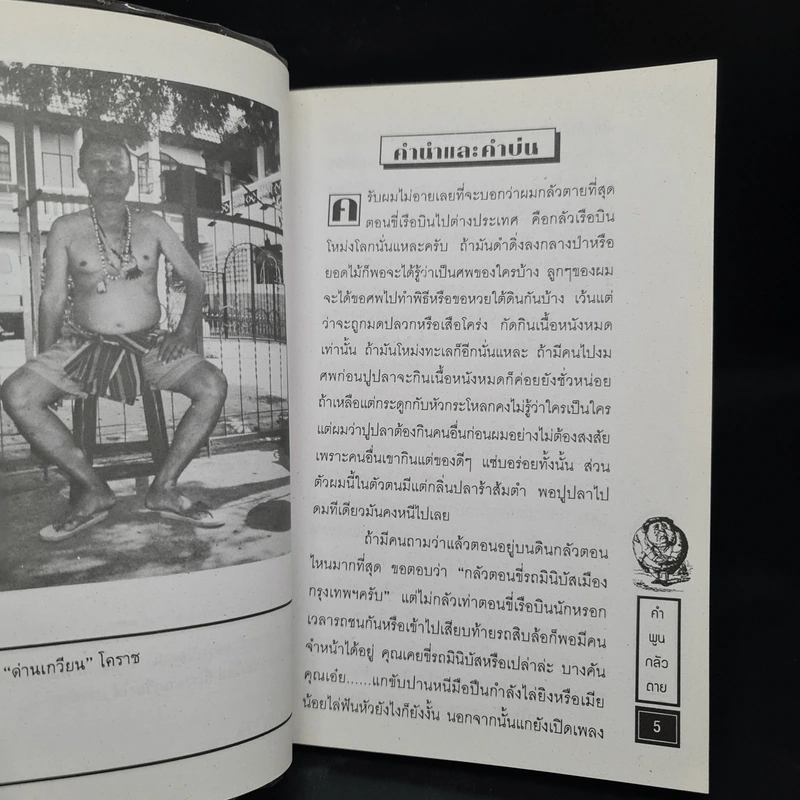 "ด่านเกวียน" โคราช
คำนำและคำบ่น
ครับผมไม่อายเลยที่จะบอกว่าผมกลัวตายที่สุด
ตอนขี่เรือบินไปต่างประเทศ คือกลัวเรือบิน
โหม่งโลกนั่นแหละครับ ถ้ามันดำดิ่งลงกลางป่าหรือ
ยอดไม้ก็พอจะได้รู้ว่าเป็นศพของใครบ้าง ลูกๆของผม
จะได้ขอศพไปทำพิธีหรือขอหวยใต้ดินกันบ้าง เว้นแต่
ว่าจะถูกมดปลวกหรือเสือโคร่ง กัดกินเนื้อหนังหมด
เท่านั้น ถ้ามันโหม่งทะเลก็อีกนั่นแหละ ถ้ามีคนไปงม
ศพก่อนปูปลาจะกินเนื้อหนังหมดก็ค่อยยังชั่วหน่อย
ถ้าเหลือแต่กระดูกกับหัวกระโหลกคงไม่รู้ว่าใครเป็นใคร
แต่ผมว่าปูปลาต้องกินคนอื่นก่อนผมอย่างไม่ต้องสงสัย
เพราะคนอื่นเขากินแต่ของดีๆ แซ่บอร่อยทั้งนั้น ส่วน
ตัวผมนี้ในตัวตนมีแต่กลิ่นปลาร้าส้มตำ พอปูปลาไป
ดมทีเดียวมันคงหนีไปเลย
ถ้ามีคนถามว่าแล้วตอนอยู่บนดินกลัวตอน
ไหนมากที่สุด ขอตอบว่า "กลัวตอนขี่รถมินิบัสเมือง
กรุงเทพฯครับ" แต่ไม่กลัวเท่าตอนขี่เรือบินนักหรอก
เวลารถชนกันหรือเข้าไปเสียบท้ายรถสิบล้อก็พอมีคน
จำหน้าได้อยู่ คุณเคยขี่รถมินิบัสหรือเปล่าล่ะ บางคัน
คุณเอ๋ย......แกขับปานหนีมือปืนกำลังไล่ยิงหรือเมีย
น้อยไล่ฟันหัวยังไงก็ยังงั้น นอกจากนั้นแกยังเปิดเพลง
คำ
พูน
กลัว
ตาย
5